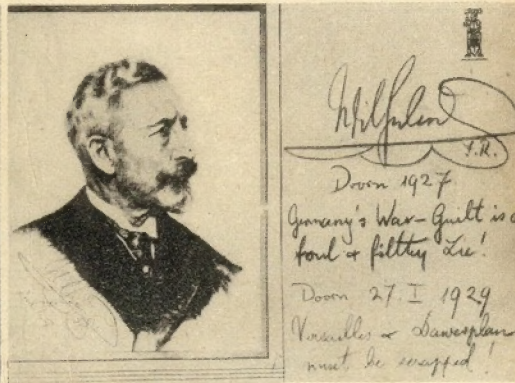 Wilhelm
I.R.
Doorn 1927
Germany's War-Guilt is a
foul & filthy Lie!
Doorn 27. I 1929
Versailles & Dawesplan
must be scrapped!